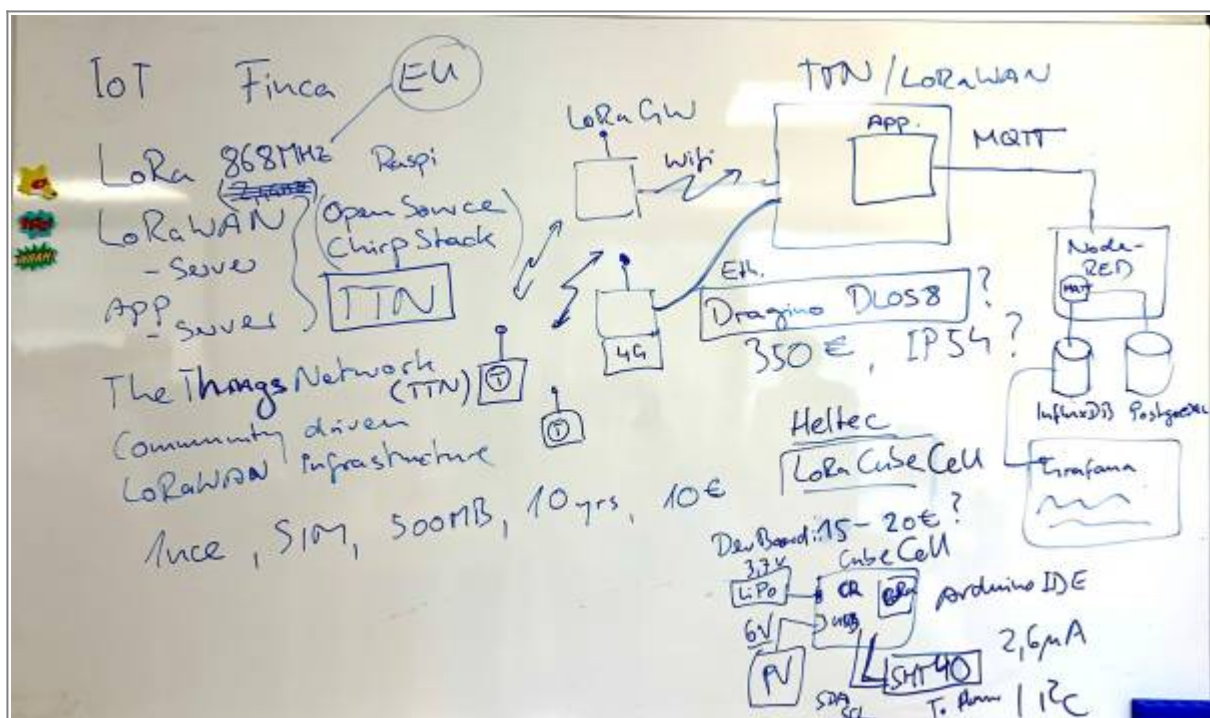 IoT Finca EU
LoRa 868MHz Raspi
LoRaWAN
- Server
App
- Server
(Open Source
ChirpStack)
TTN
The Things Network
(TTN)
Community driven
LoRaWAN Infrastructure
1nce, SIM, 500MB, 10yrs, 10€
LoRa GW
Wifi
4G
T
T
TTN/LoRaWAN
App.
MQTT
Eth.
Dragino DLOS8 ?
350€, IP54?
Node-
RED
MQTT
InfluxDB
Grafana
Heltec
LoRa CubeCell
DevBoard: 15-20€?
CubeCell
3,7V
LiPo
6V
PV
USB
Arduino IDE
SHT40
2,6µA
SDA
SCL
I²C